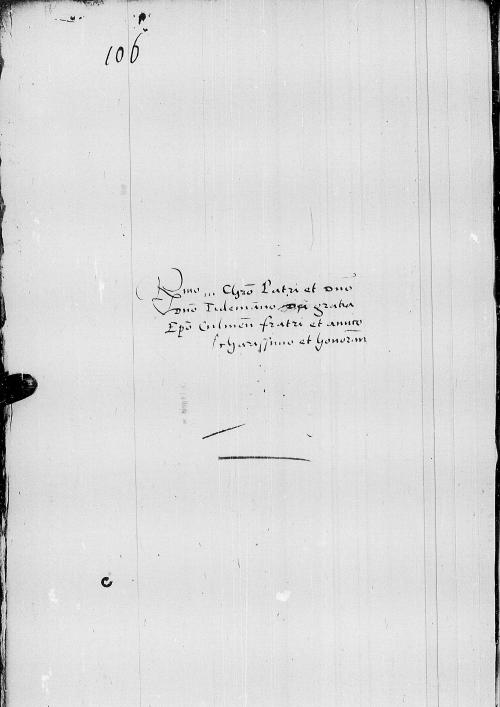 106
Rmo in Chro Patri et Dno
Dno Tidemanno Dei gratia
Epo Culmen fratri et amico
charissimo et honoran